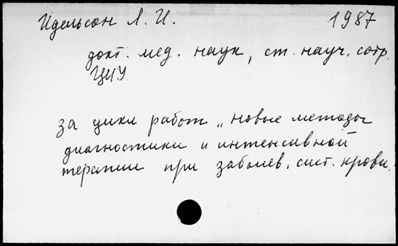 Идельсон Л. И. 1987
докт. мед. наук, ст. науч. сотр.
ЦИУ
за цикл работ „Новые методы
диагностики и интенсивной
терапии при заболев. сист. крови.